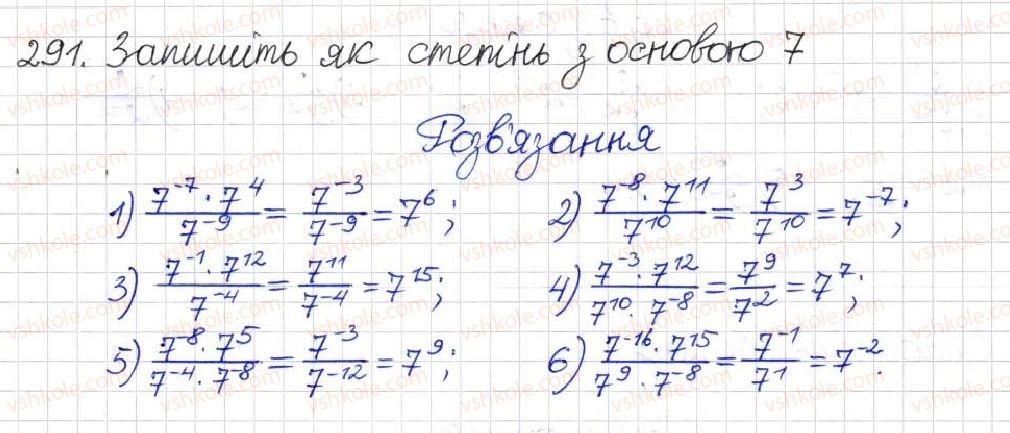 291. Запишіть як степінь з основою 7
Розв'язання
1) \frac{7^{-7} \cdot 7^{4}}{7^{-9}} = \frac{7^{-3}}{7^{-9}} = 7^{6}; 2) \frac{7^{-8} \cdot 7^{11}}{7^{10}} = \frac{7^{3}}{7^{10}} = 7^{-7};
3) \frac{7^{-1} \cdot 7^{12}}{7^{-4}} = \frac{7^{11}}{7^{-4}} = 7^{15}; 4) \frac{7^{-3} \cdot 7^{12}}{7^{10} \cdot 7^{-8}} = \frac{7^{9}}{7^{2}} = 7^{7};
5) \frac{7^{-8} \cdot 7^{5}}{7^{-4} \cdot 7^{-8}} = \frac{7^{-3}}{7^{-12}} = 7^{9}; 6) \frac{7^{-16} \cdot 7^{15}}{7^{9} \cdot 7^{-8}} = \frac{7^{-1}}{7^{1}} = 7^{-2}.
vshkole.com